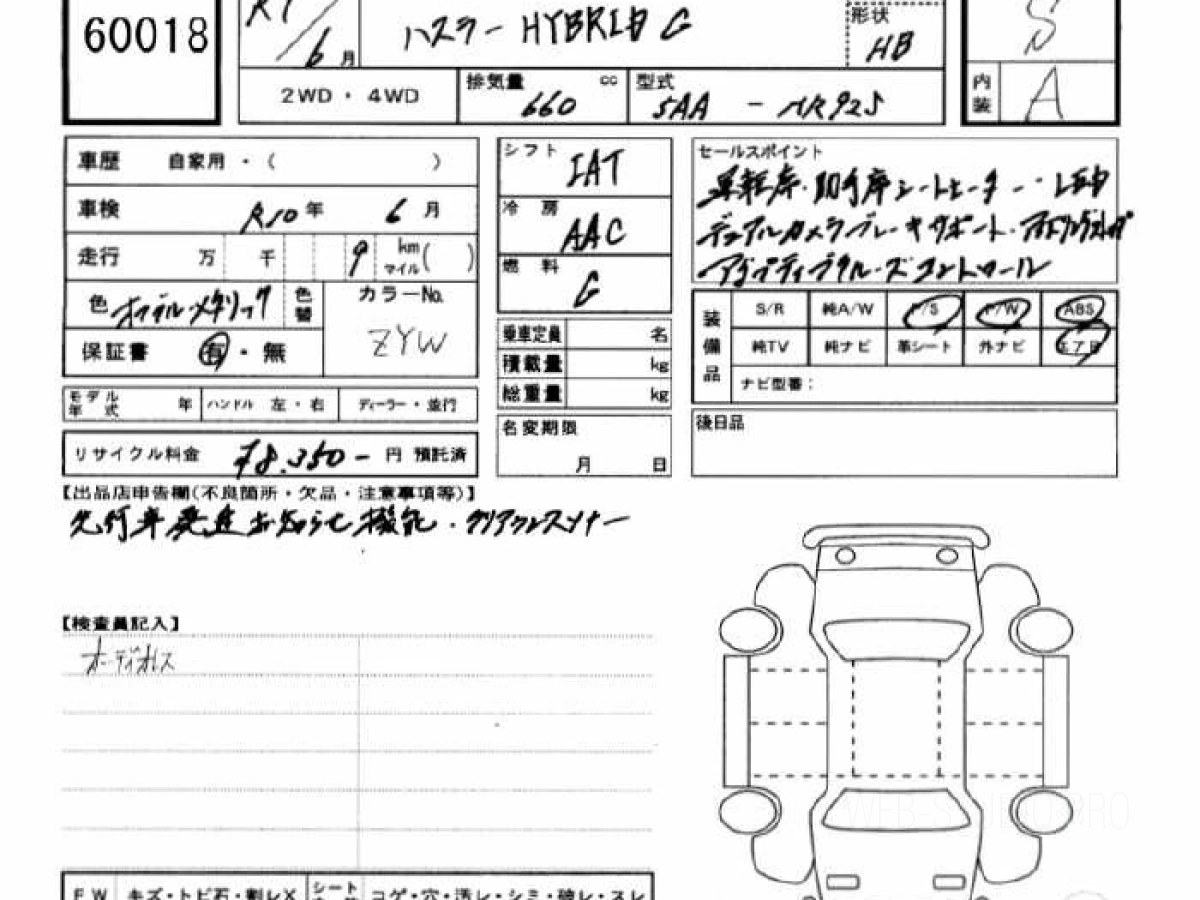 60018
R7/6月
ハスラー HYBRID G
形状 HB
S
2WD・4WD
排気量 660 cc
型式 5AA - MR92S
内装 A
車歴 自家用・( )
車検 R10年 6月
走行 万 千 9 km マイル( )
色 オフブルーメタリック 色替
カラーNo. ZYW
保証書 有・無
モデル年式 年 ハンドル 左・右 ディーラー・並行
リサイクル料金 ¥8.350- 円 預託済
シフト IAT
冷房 AAC
燃料 G
乗車定員 名
積載量 kg
総重量 kg
名変期限
月 日
セールスポイント
運転席・助手席シートヒーター・LED
デュアルカメラブレーキサポート・アイドリングストップ
アダプティブクルーズコントロール
装備品 S/R 純A/W P/S P/W ABS
純TV 純ナビ 革シート 外ナビ エアB
ナビ型番:
後日品
【出品店申告欄(不良箇所・欠品・注意事項等)】
先行車発進お知らせ機能・クリアランスソナー
【検査員記入】
オーディオレス
WEB-S PRO
FW キズ・トビ石・割レX シート コゲ・穴・汚レ・シミ・破レ・スレ